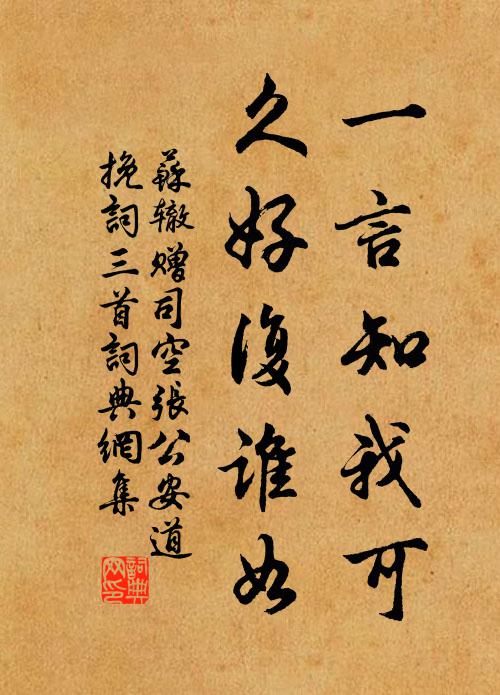 一言知我可
久好復誰如
蘇轍贈司空張公安道
挽詞三首詞典網集
詞典
网印